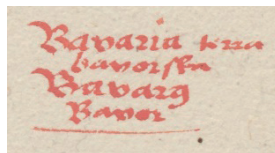 Bavaria terra
bavorska
Bavarꝯ
Bavor